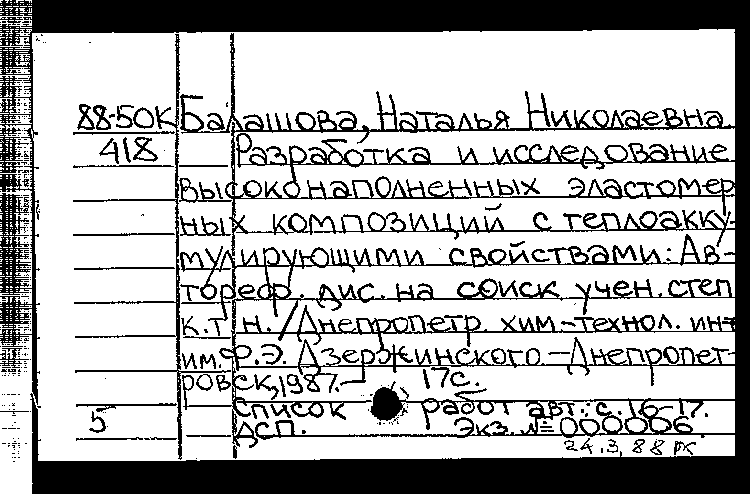 88-50К Балашова, Наталья Николаевна.
418 Разработка и исследование
высоконаполненных эластомер
ных композиций с теплоакку-
мулирующими свойствами: Ав-
тореф. дис. на соиск учен. степ
к.т н. / Днепропетр. хим.-технол. ин-т
им. Ф.Э. Дзержинского.-Днепропет-
ровск, 1987.- 17с.
Список работ авт.: с. 16-17.
5 ДСП. Экз. № 000006.
24.3.88 рк